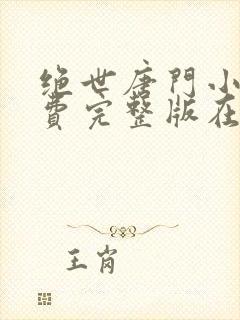 绝世唐門小
費完整版在
王岗